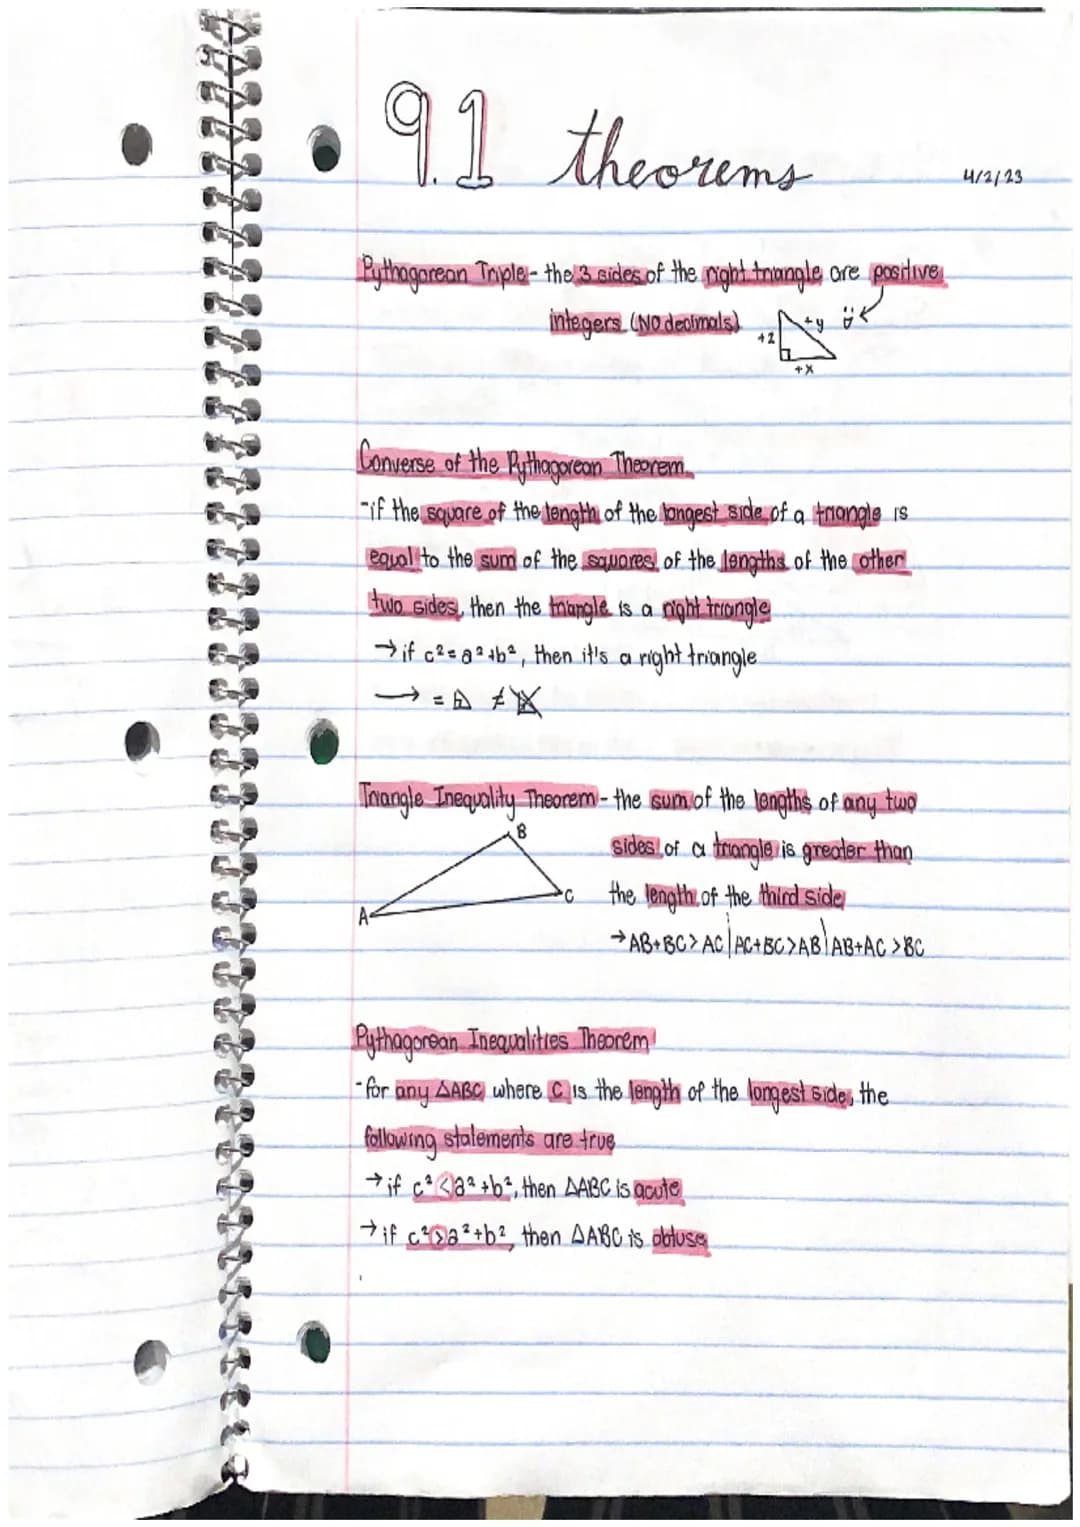 9.1 theorems
4/2/23
Pythagorean Triple - the 3 sides of the right triangle are positive
integers (NO decimals)
+z
+y
+x
Converse of the Pythagorean Theorem
- if the square of the length of the longest side of a triangle is
equal to the sum of the squares of the lengths of the other
two sides, then the triangle is a right triangle
→ if c² = a² + b², then it's a right triangle
→ = ≠
Triangle Inequality Theorem - the sum of the lengths of any two
sides of a triangle is greater than
the length of the third side
→ AB+BC > AC | AC+BC > AB | AB+AC > BC
A
B
C
Pythagorean Inequalities Theorem
- for any △ABC where C is the length of the longest side, the
following statements are true
→ if c² < a² + b², then △ABC is acute
→ if c² > a² + b², then △ABC is obtuse